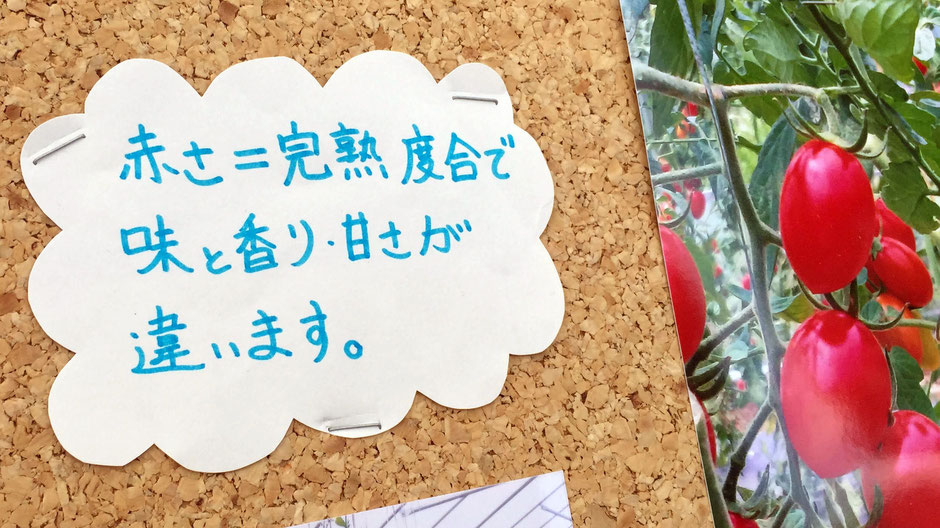 赤さ=完熟度合で
味と香り・甘さが
違います。